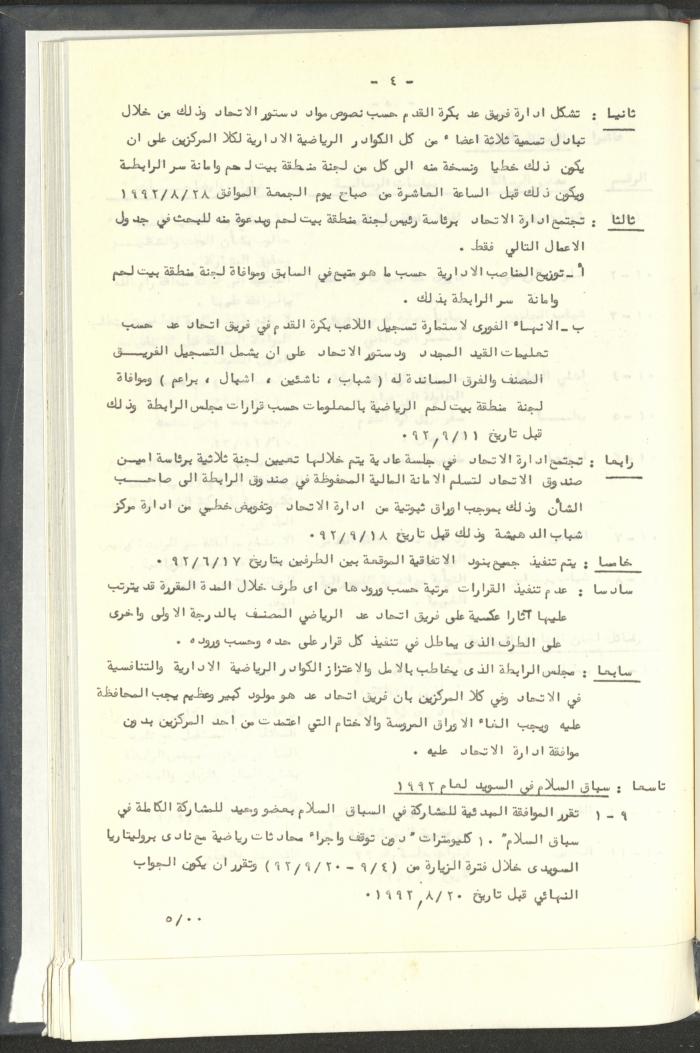 - ٤ -
ثانيا : تشكل ادارة فريق عد بكرة القدم حسب نصوص مواد دستور الاتحاد وذلك من خلال
تبادل تسمية ثلاثة اعضاء من كل الكوادر الرياضية الادارية لكلا المركزين على ان
يكون ذلك خطيا ونسخة منه الى كل من لجنة منطقة بيت لحم وامانة سر الرابطة
ويكون ذلك قبل الساعة العاشرة من صباح يوم الجمعة الموافق ١٩٩٢/٨/٢٨
ثالثا : تجتمع ادارة الاتحاد برئاسة رئيس لجنة منطقة بيت لحم وبدعوة منه للبحث في جدول
الاعمال التالي فقط .
أ - توزيع المناصب الادارية حسب ما هو متبع في السابق وموافاة لجنة منطقة بيت لحم
وامانة سر الرابطة بذلك .
ب - الانهاء الفورى لاستمارة تسجيل اللاعب بكرة القدم في فريق اتحاد عد حسب
تعليمات القيد المجدد ودستور الاتحاد على ان يشمل التسجيل الفريق
المصنف والفرق المساندة له ( شباب ، ناشئين ، اشبال ، براعم ) وموافاة
لجنة منطقة بيت لحم الرياضية بالمعلومات حسب قرارات مجلس الرابطة وذلك
قبل تاريخ ٩٢/٩/١١ .
رابعا : تجتمع ادارة الاتحاد في جلسة عادية يتم خلالها تعيين لجنة ثلاثية برئاسة امين
صندوق الاتحاد لتسلم الامانة المالية المحفوظة في صندوق الرابطة الى صاحب
الشأن وذلك بموجب اوراق ثبوتية من ادارة الاتحاد وتفويض خطي من ادارة مركز
شباب الدهيشة وذلك قبل تاريخ ٩٢/٩/١٨ .
خامسا : يتم تنفيذ جميع بنود الاتفاقية الموقعة بين الطرفين بتاريخ ٩٢/٦/١٧ .
سادسا : عدم تنفيذ القرارات مرتبة حسب ورودها من اى طرف خلال المدة المقررة قد يترتب
عليها آثارا عكسية على فريق اتحاد عد الرياضي المصنف بالدرجة الاولى واخرى
على الطرف الذى يماطل في تنفيذ كل قرار على حده وحسب وروده .
سابعا : مجلس الرابطة الذى يخاطب بالامل والاعتزاز الكوادر الرياضية الادارية والتنافسية
في الاتحاد وفي كلا المركزين بان فريق اتحاد عد هو مولود كبير وعظيم يجب المحافظة
عليه ويجب الغاء الاوراق المروسة والاختام التي اعتمدت من احد المركزين بدون
موافقة ادارة الاتحاد عليه .
تاسعا : سباق السلام في السويد لعام ١٩٩٢
٩ - ١ تقرر الموافقة المبدئية للمشاركة في السباق السلام بعضو وحيد للمشاركة الكاملة في
سباق السلام " ١٠ كليومترات " دون توقف واجراء محادثات رياضية مع نادى بروليتاريا
السويدى خلال فترة الزيارة من ( ٩/٤ - ٩٢/٩/٢٠ ) وتقرر ان يكون الجواب
النهائي قبل تاريخ ١٩٩٢/٨/٢٠ .
٥/٠٠